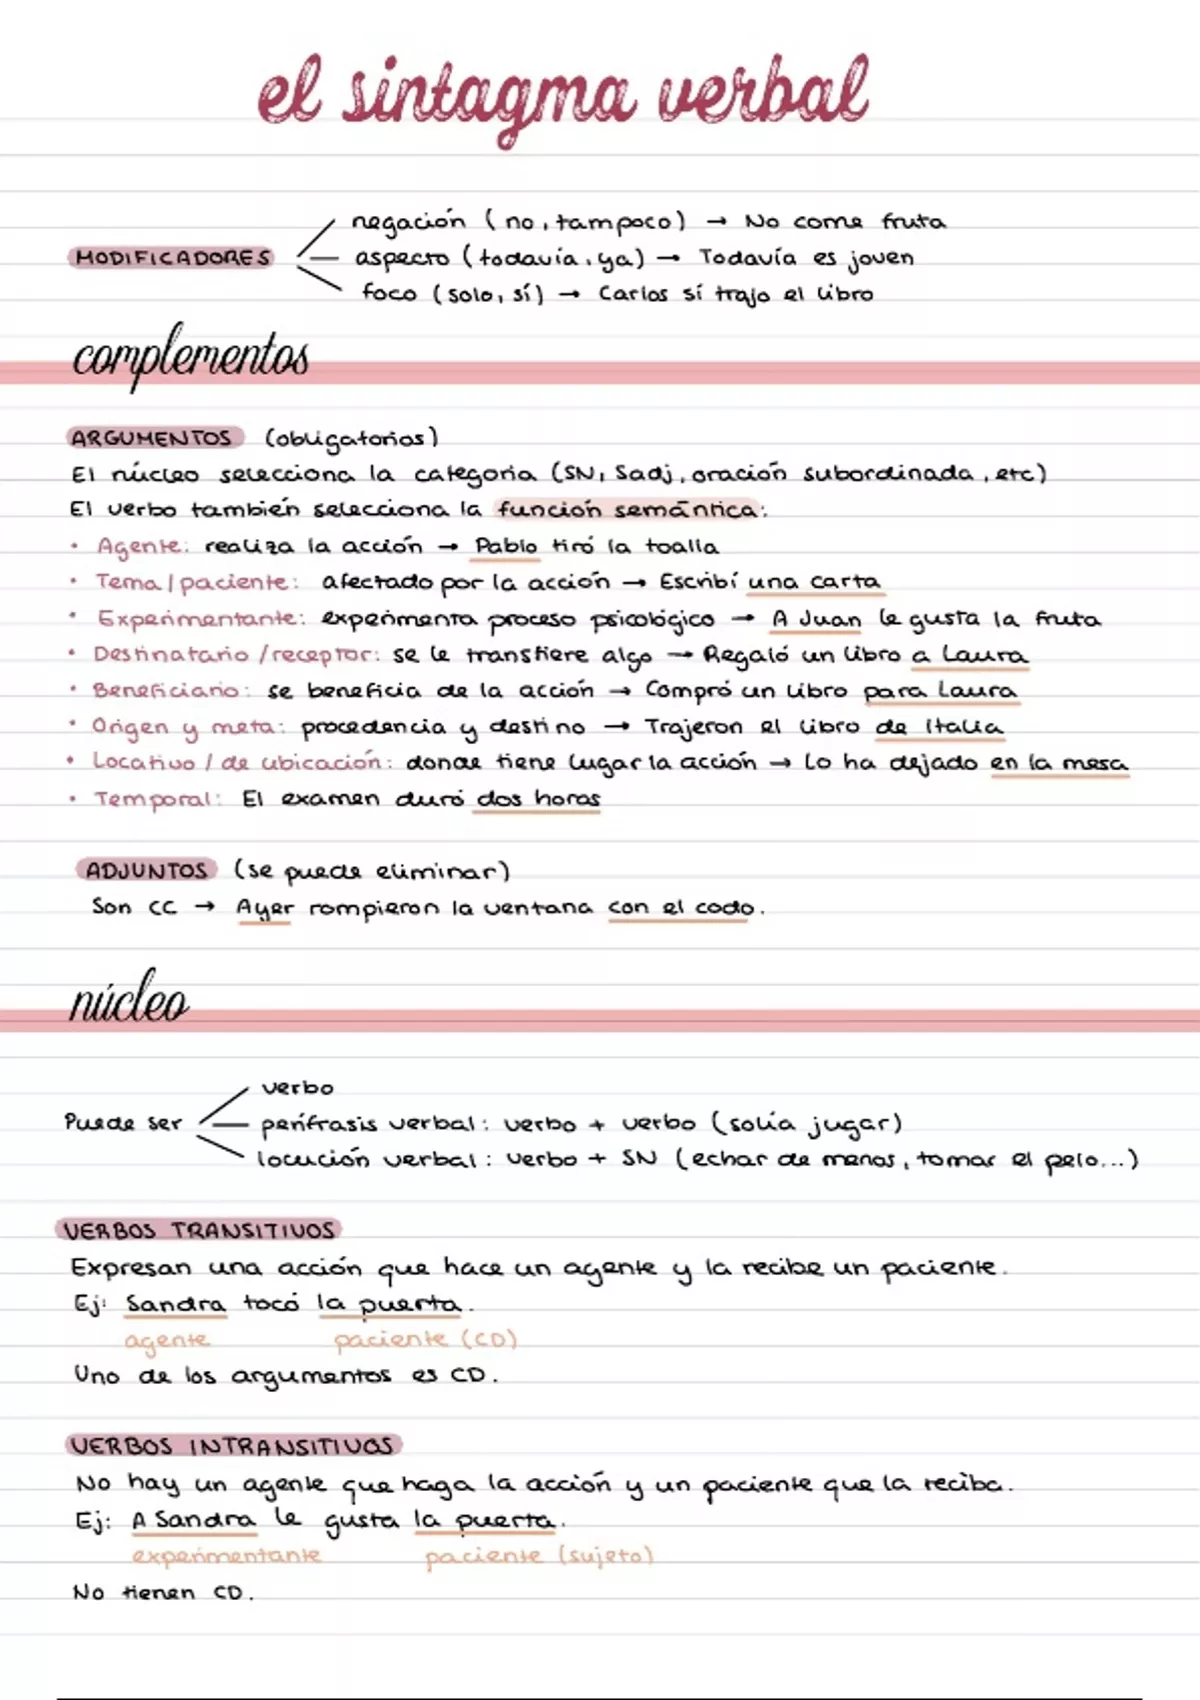 el sintagma verbal
negación (no, tampoco) → No come fruta
MODIFICADORES — aspecto (todavía, ya) → Todavía es joven
foco (solo, sí) → Carlos sí trajo el libro
complementos
ARGUMENTOS (obligatorios)
El núcleo selecciona la categoría (SN, Sadj, oración subordinada, etc)
El verbo también selecciona la función semántica:
• Agente: realiza la acción → Pablo tiró la toalla
• Tema / paciente: afectado por la acción → Escribí una carta
• Experimentante: experimenta proceso psicológico → A Juan le gusta la fruta
• Destinatario / receptor: se le transfiere algo → Regaló un libro a Laura
• Beneficiario: se beneficia de la acción → Compró un libro para Laura
• Origen y meta: procedencia y destino → Trajeron el libro de Italia
• Locativo / de ubicación: donde tiene lugar la acción → Lo ha dejado en la mesa
• Temporal: El examen duró dos horas
ADJUNTOS (se puede eliminar)
Son CC → Ayer rompieron la ventana con el codo.
núcleo
verbo
Puede ser — perífrasis verbal: verbo + verbo (solía jugar)
locución verbal: verbo + SN (echar de menos, tomar el pelo...)
VERBOS TRANSITIVOS
Expresan una acción que hace un agente y la recibe un paciente.
Ej: Sandra tocó la puerta.
agente paciente (CD)
Uno de los argumentos es CD.
VERBOS INTRANSITIVOS
No hay un agente que haga la acción y un paciente que la reciba.
Ej: A Sandra le gusta la puerta.
experimentante paciente (sujeto)
No tienen CD.